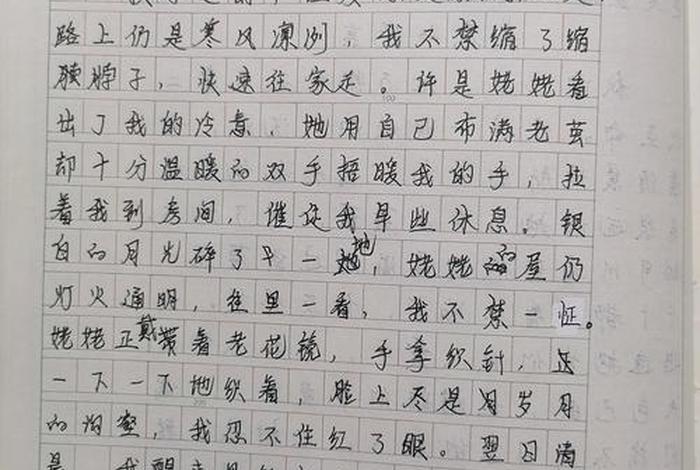 路上仍是寒风凛冽，我不禁缩了缩
脖子，快速往家走。许是姥姥看
出了我的冷意，她用自己布满老茧
却十分温暖的双手捂暖我的手，拉
着我到房间，催促我早些休息。银
白的月光碎了一地，姥姥的屋仍
灯火通明，往里一看，我不禁一怔。
姥姥正戴着老花镜，手拿织针，正
一下一下地织着，脸上尽是岁月
的沟壑，我忍不住红了眼。翌日清